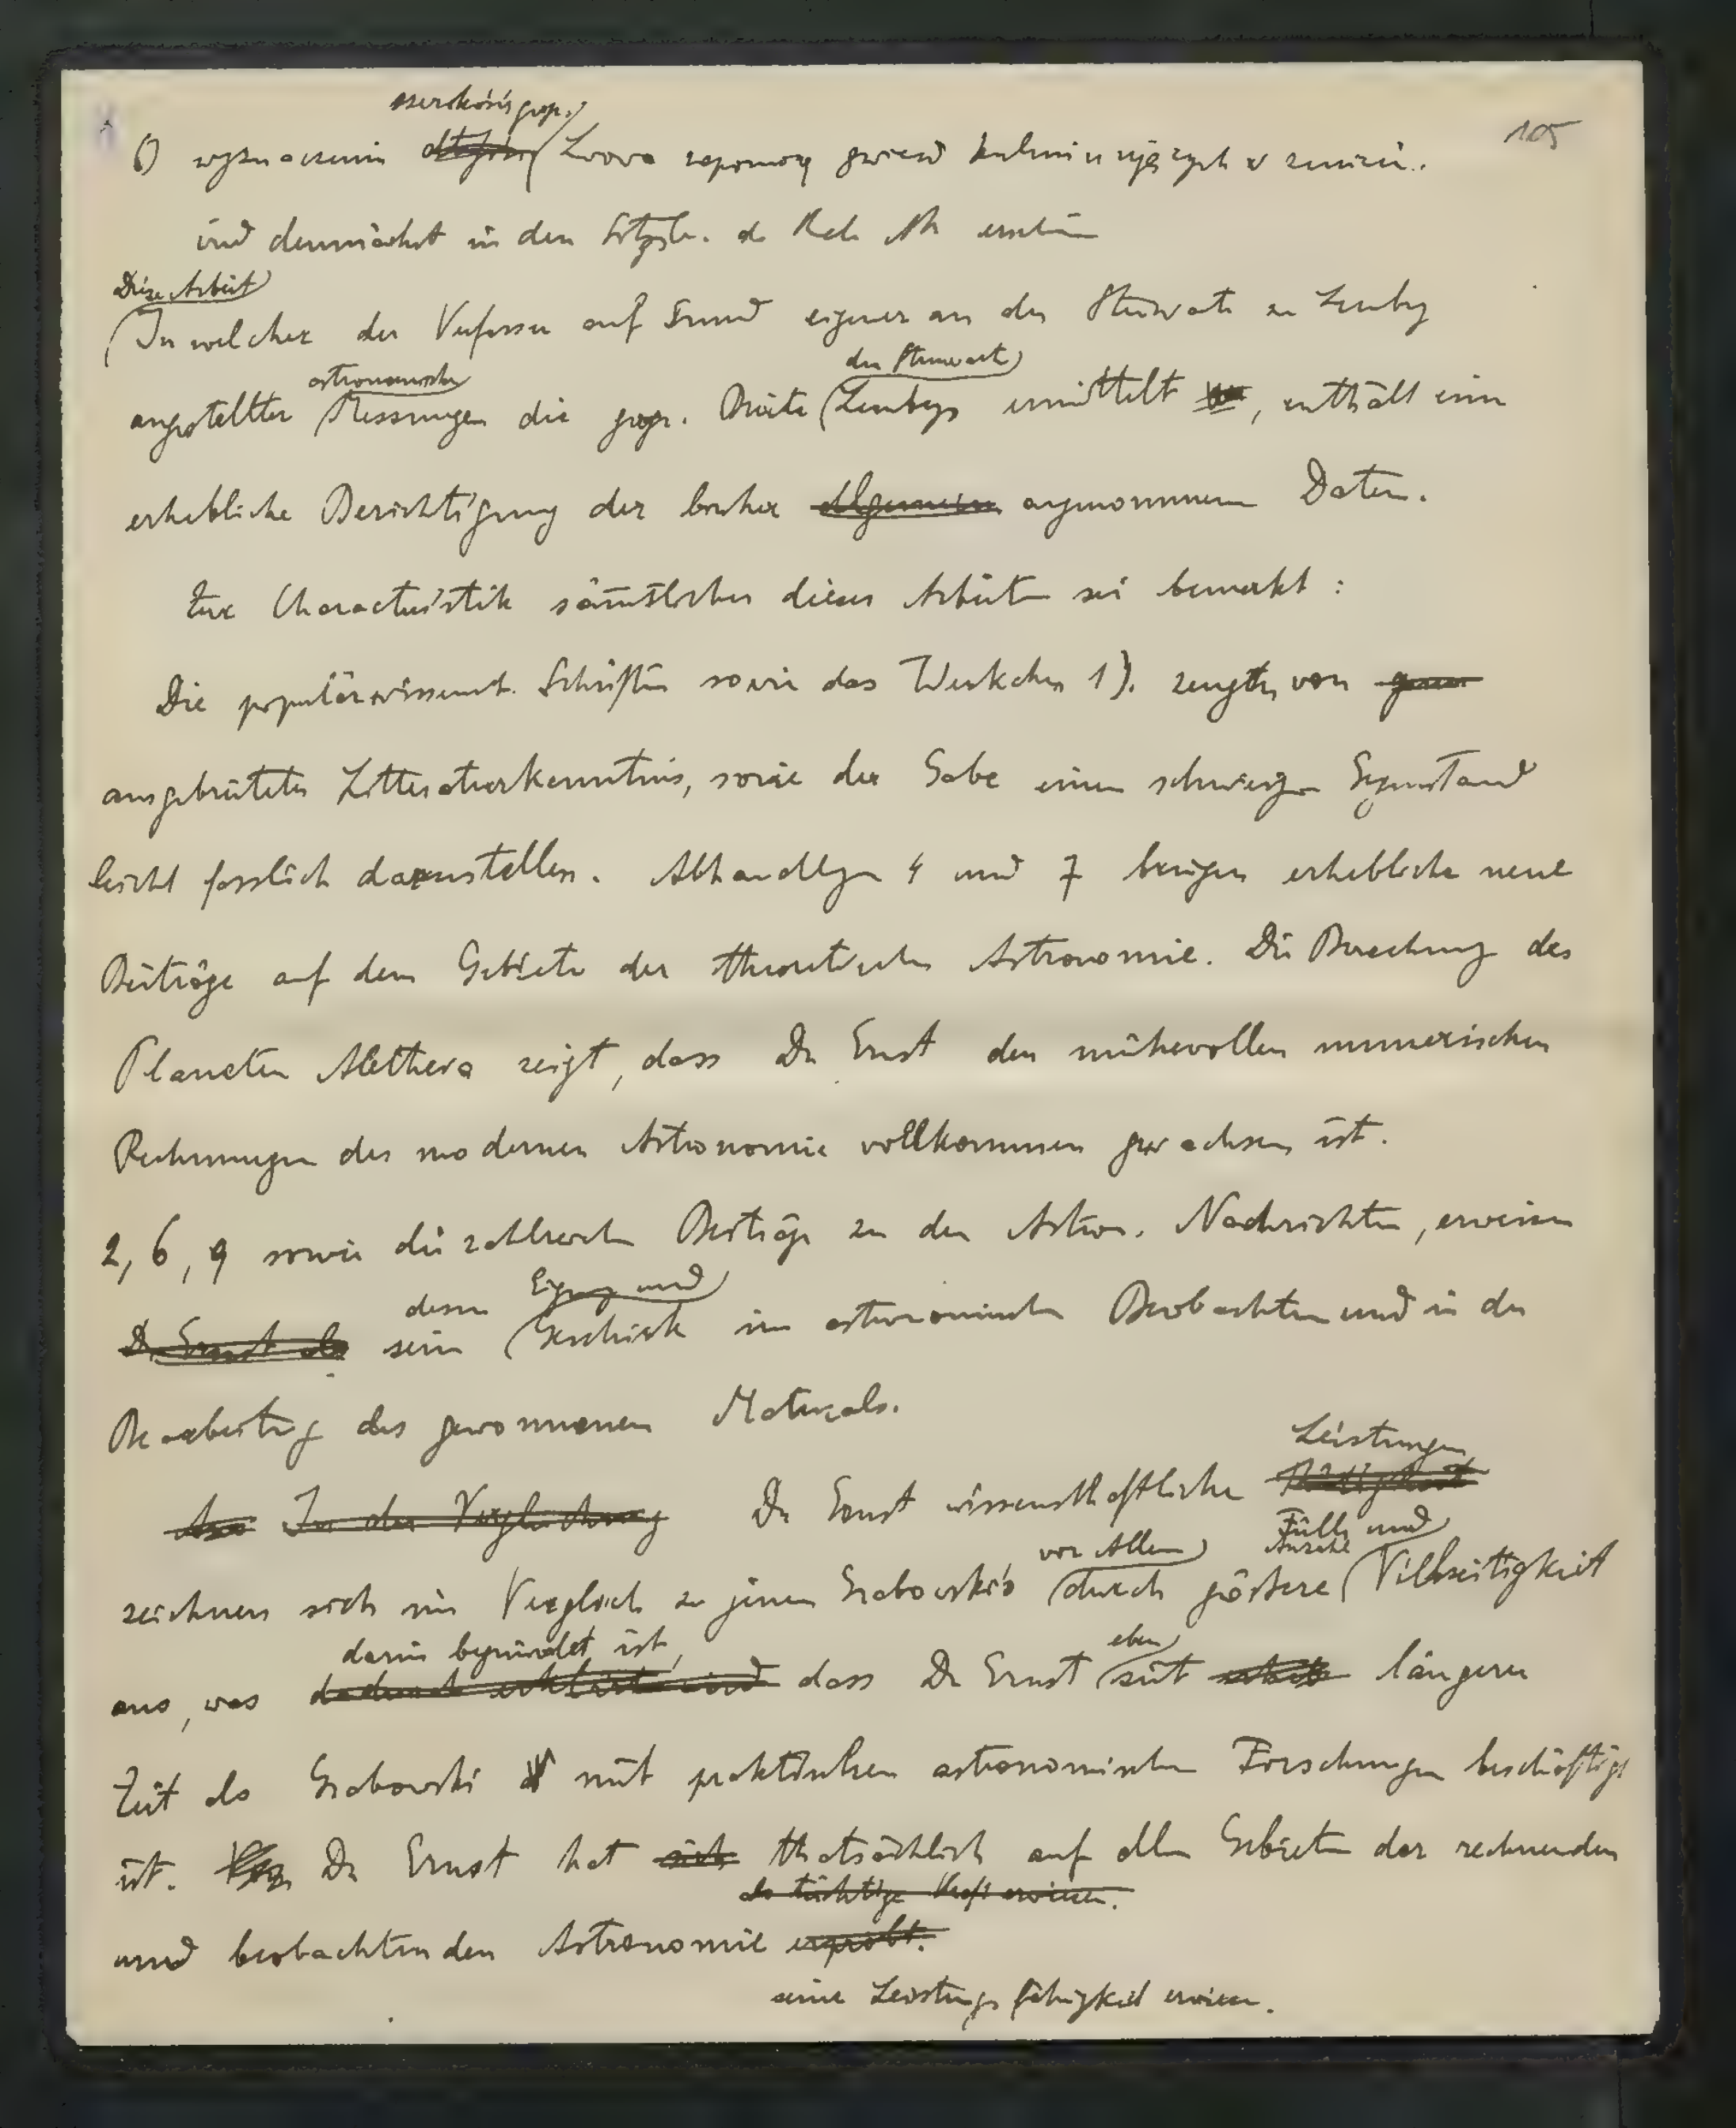 105
szerokości geogr.
6) wyznaczenie Lwowa zapomocą gwiazd kulminujących w zenicie.
wird demnächst in den Sitzgsb. d. Ak erscheinen
Diese Arbeit
In welcher der Verfasser auf Grund eigener an der Sternwarte zu Lemberg
astronomischer der Sternwarte
angestellter Messungen die geogr. Breite Lembergs ermittelt, enthält eine
erhebliche Berichtigung der bisher allgemein angenommenen Daten.
Zur Characteristik sämtlicher dieser Arbeiten sei bemerkt :
Die populärwissensch. Schriften sowie das Werkchen 1). zeugen von
ausgebreiteter Litteraturkenntnis, sowie der Gabe einen schwierigen Gegenstand
leicht fasslich darzustellen. Abhandlgen 4 und 7 bringen erhebliche neue
Beiträge auf dem Gebiete der theoretischen Astronomie. Die Berechnung des
Planeten Alethera zeigt, dass Dr Ernst den mühevollen numerischen
Rechnungen der modernen Astronomie vollkommen gewachsen ist.
2, 6, 9 sowie die zahlreichen Beiträge zu den Astron. Nachrichten, erweisen
dessen Eignung und
Dr Ernst als sein Geschick im astronomischen Beobachten und in der
Bearbeitung des gewonnenen Materials.
Leistungen
In der Vergleichung Dr Ernst wissenschaftliche Thätigkeit
vor Allem Fülle und
Anzahl
zeichnen sich im Vergleich zu jenen Grabowski's durch grössere Vielseitigkeit
darin begründet ist, eben
aus, was dadurch erklärt wird dass Dr Ernst seit längerer
Zeit als Grabowski mit praktischen astronomischen Forschungen beschäftigt
ist. Dr Ernst hat sich thatsächlich auf allen Gebieten der rechnenden
als tüchtige Kraft erwiesen.
und beobachtenden Astronomie erprobt.
seine Leistungsfähigkeit erwiesen.